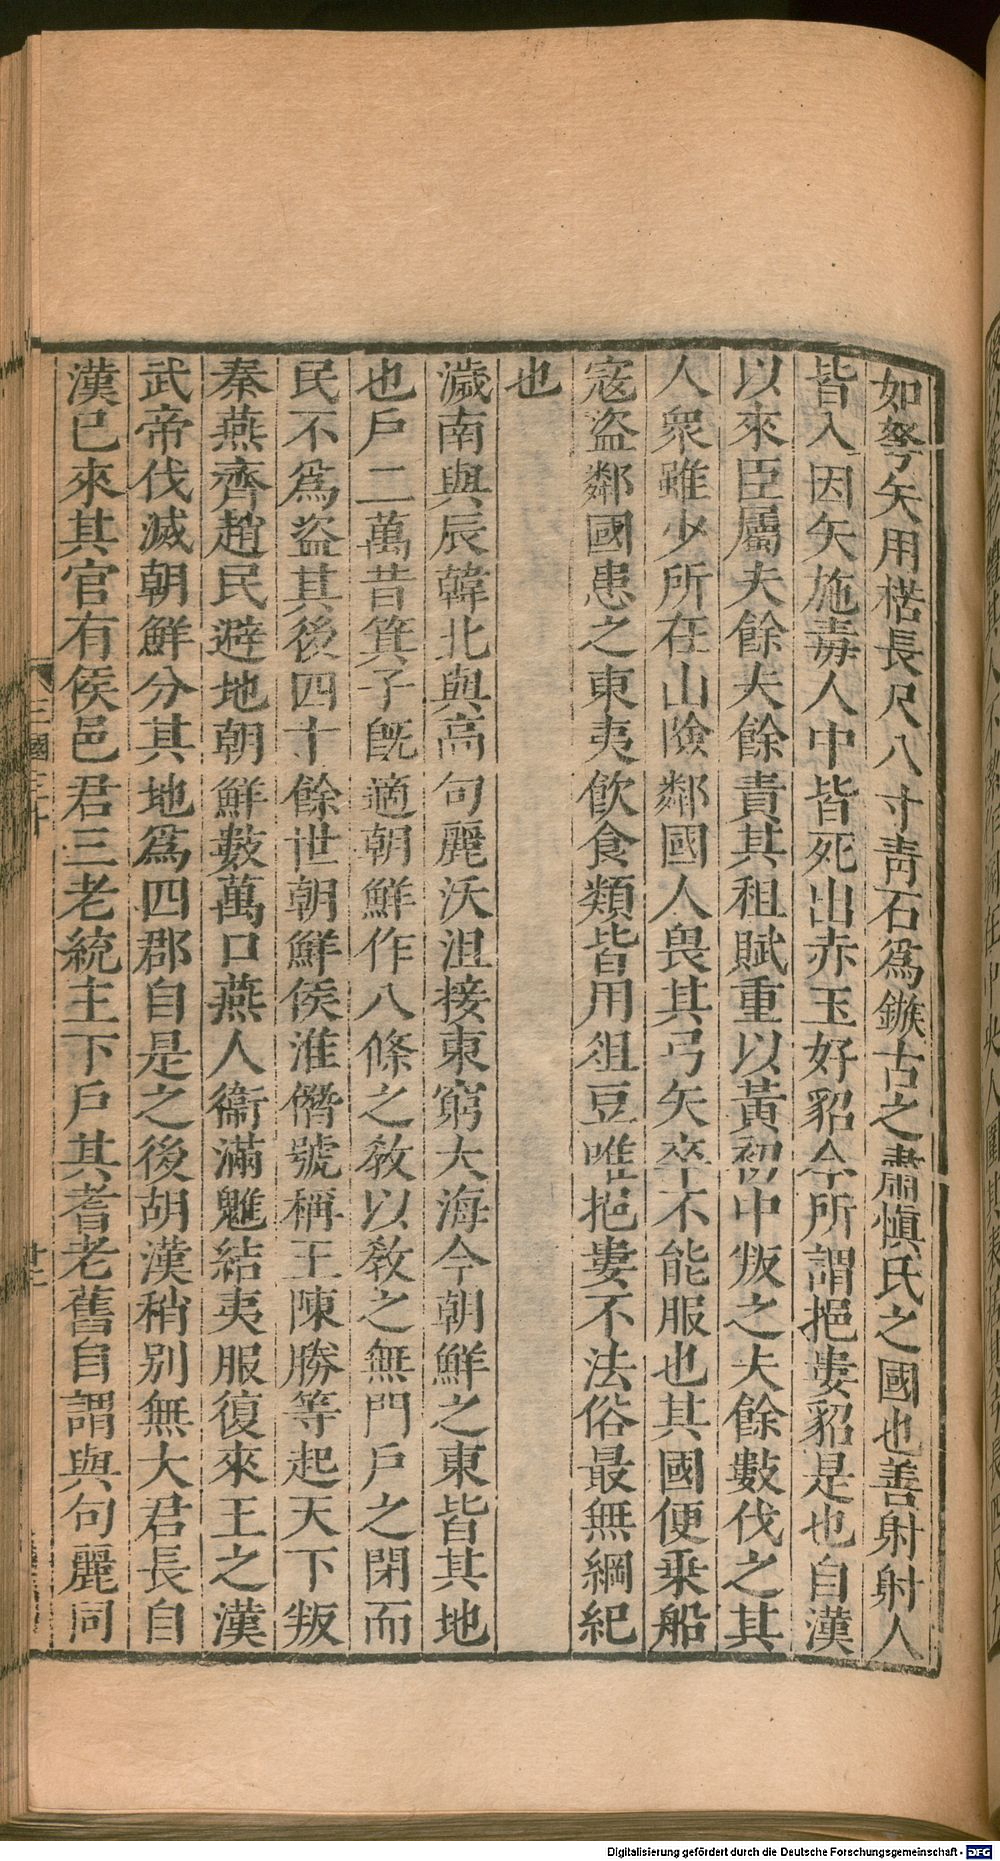 如弩矢用楛長尺八寸靑石爲鏃古之肅愼氏之國也善射射人
皆入因矢施毒人中皆死出赤玉好貂今所謂挹婁貂是也自漢
以來臣屬夫餘夫餘責其租賦重以黃初中叛之夫餘數伐之其
人衆雖少所在山險鄰國人畏其弓矢卒不能服也其國便乘船
寇盜鄰國患之東夷飮食類皆用俎豆唯挹婁不法俗最無綱紀
也
濊南與辰韓北與高句麗沃沮接東窮大海今朝鮮之東皆其地
也戶二萬昔箕子旣適朝鮮作八條之敎以敎之無門戶之閉而
民不爲盜其後四十餘世朝鮮侯淮僭號稱王陳勝等起天下叛
秦燕齊趙民避地朝鮮數萬口燕人衞滿魋結夷服復來王之漢
武帝伐滅朝鮮分其地爲四郡自是之後胡漢稍別無大君長自
漢已來其官有侯邑君三老統主下戶其耆老舊自謂與句麗同
三國三十
廿七
Digitalisierung gefördert durch die Deutsche Forschungsgemeinschaft - DFG